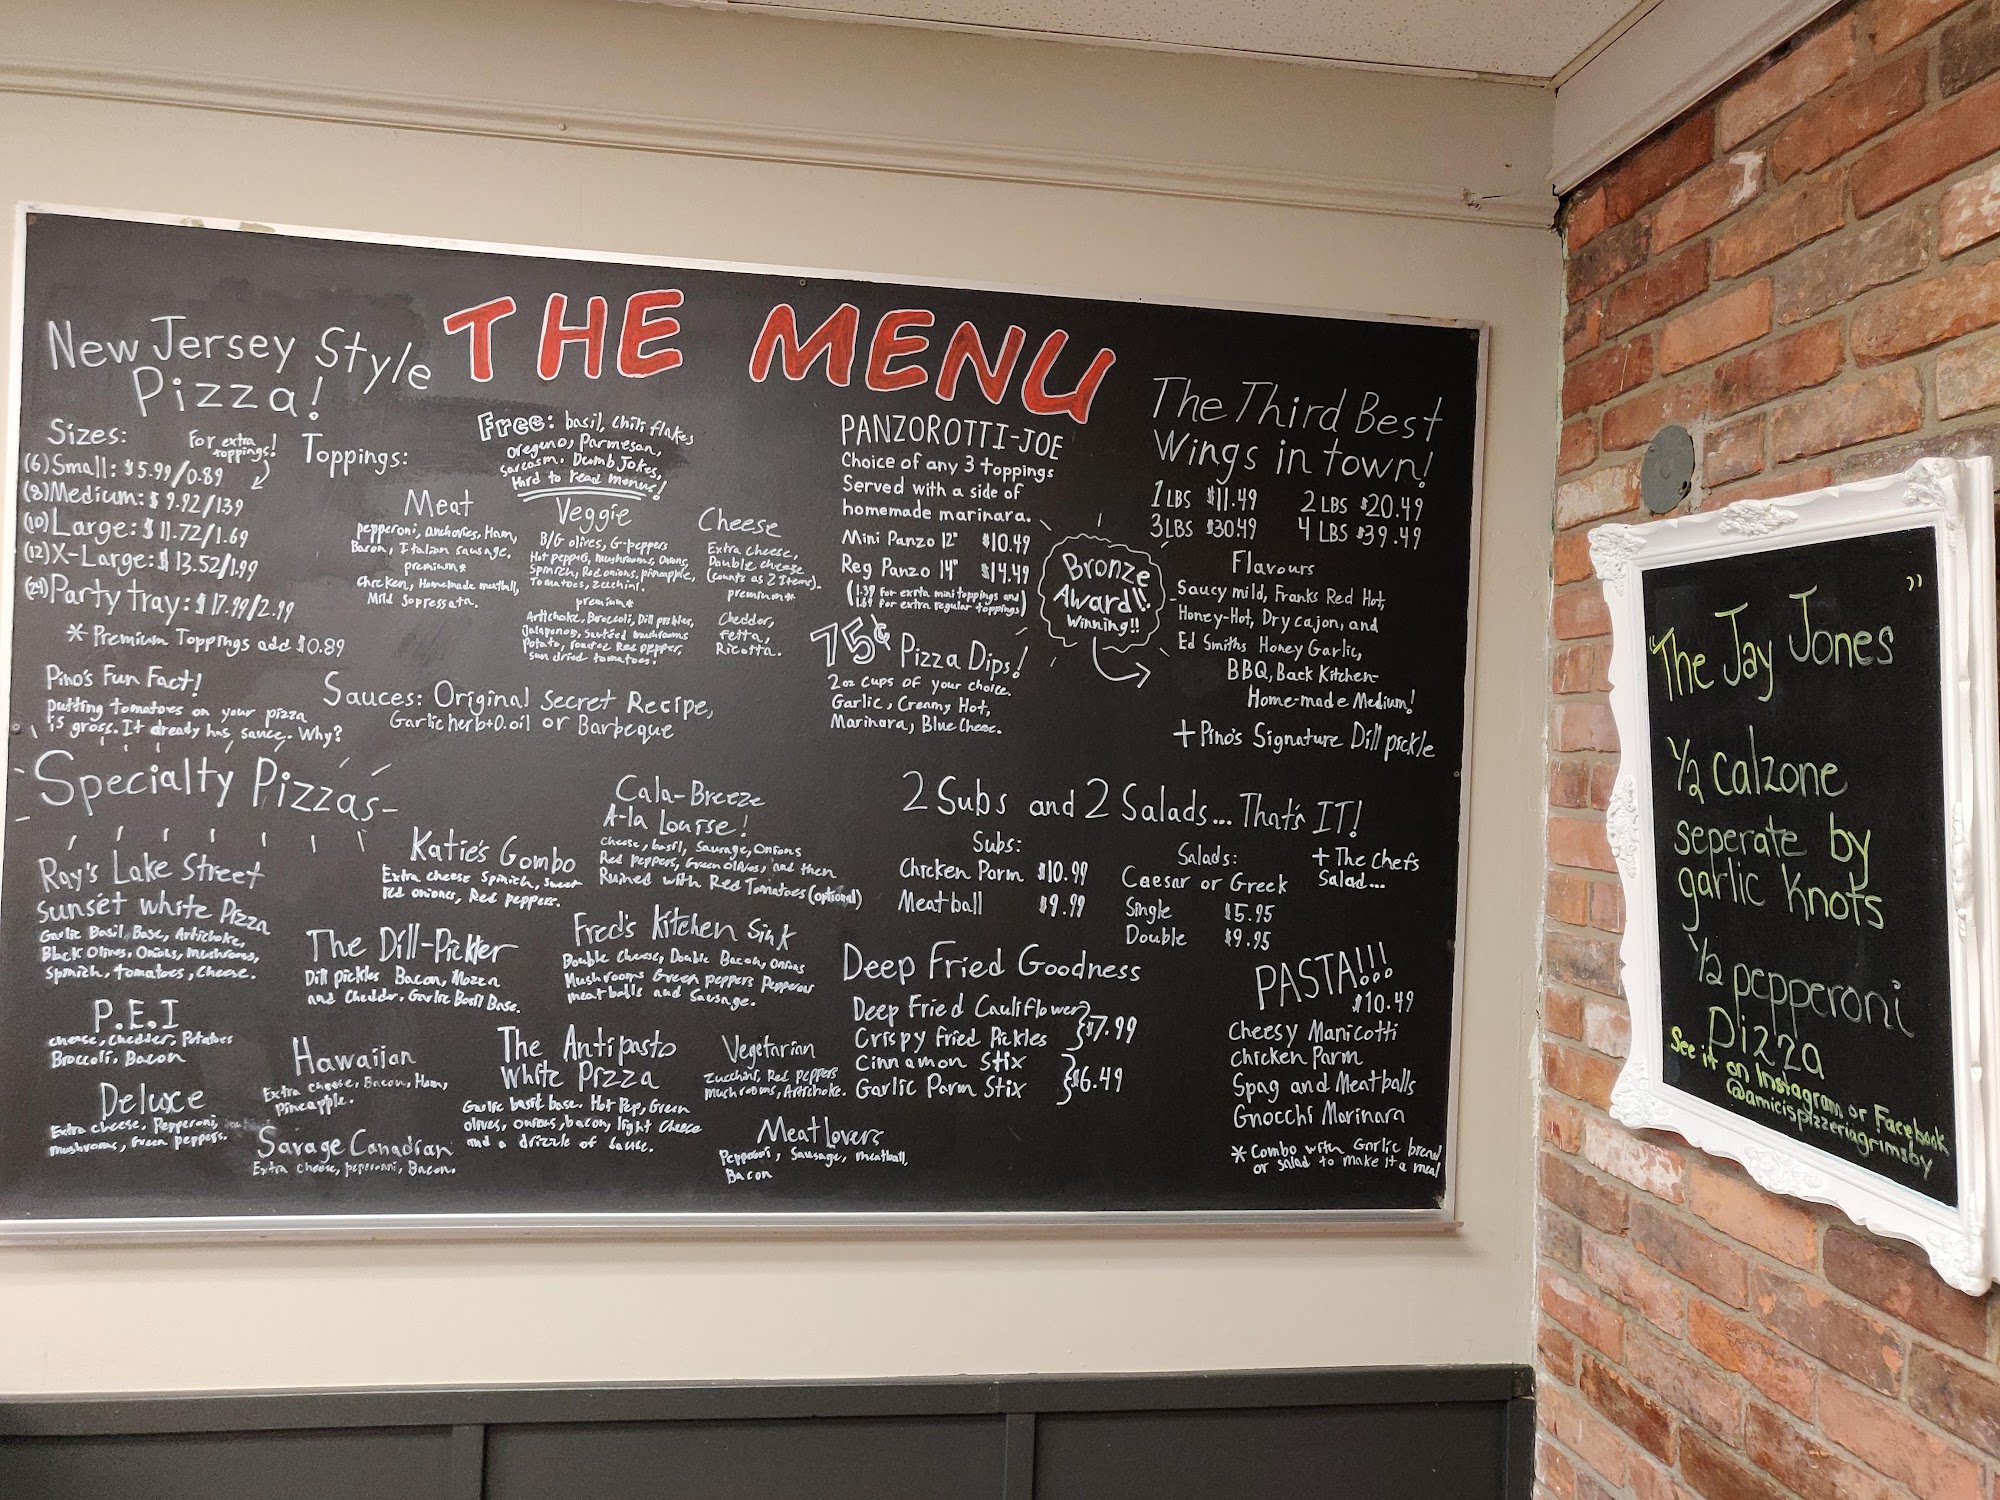 THE MENU
New Jersey Style
Pizza!
Sizes:
For extra
toppings!
(6) Small: $5.99/0.89
(8) Medium: $9.92/139
(10) Large: $11.72/1.69
(12) X-Large: $13.52/1.99
(24) Party tray: $17.99/2.99
* Premium Toppings add $0.89
Pino's Fun Fact!
putting tomatoes on your pizza
is gross. It already has sauce. Why?
Toppings:
Free: basil, chili flakes
oregeno, Parmesan,
sarcasm, Dumb Jokes,
Hard to read menus!
Meat
pepperoni, anchovies, Ham,
Bacon, Italian sausage.
premium*
Chicken, Homemade meatball,
Mild Sopressata.
Veggie
B/G olives, G-peppers
Hot peppers, mushrooms, Onions,
Spinich, Red onions, pineapple,
Tomatoes, Zucchini.
premium*
Artichoke, Broccoli, Dill pickles,
Jalapenos, Sautéed mushrooms
Potato, roasted Red pepper,
sun dried tomatoes.
Cheese
Extra cheese,
Double cheese
(counts as 2 Items).
premium*
Cheddar,
Fetta,
Ricotta.
Sauces: Original Secret Recipe,
Garlic herb+O.oil or Barbeque
PANZOROTTI-JOE
Choice of any 3 toppings
Served with a side of
homemade marinara.
Mini Panzo 12" $10.49
Reg Panzo 14" $14.49
(1.39 for exrta mini toppings and
1.69 for extra regular toppings)
75¢ Pizza Dips!
2oz cups of your choice.
Garlic, Creamy Hot,
Marinara, Blue Cheese.
Bronze
Award!!
Winning!!
The Third Best
Wings in town!
1 LBS $11.49 2 LBS $20.49
3 LBS $30.49 4 LBS $39.49
Flavours
Saucy mild, Franks Red Hot,
Honey-Hot, Dry cajon, and
Ed Smiths Honey Garlic,
BBQ, Back Kitchen-
Home-made Medium!
+ Pino's Signature Dill pickle
Specialty Pizzas-
Ray's Lake Street
Sunset White Pizza
Garlic Basil Base, Artichoke,
Black Olives, Onions, Mushrooms,
Spinich, tomatoes, cheese.
P.E.I
cheese, chedder, Potatoes
Broccoli, Bacon
Deluxe
Extra cheese, Pepperoni,
mushrooms, Green peppers.
Katie's Gombo
Extra cheese Spinich, sweet
red onions, Red peppers.
The Dill-Pickler
Dill pickles Bacon, Mozza
and Cheddar, Garlic Basil Base.
Hawaiian
Extra cheese, Bacon, Ham,
pineapple.
Savage Canadian
Extra cheese, peperonni, Bacon.
Cala-Breeze
A-la Louise!
Cheese, basil, Sausage, Onions
Red peppers, Green olives, and then
Ruined with Red Tomatoes (optional)
Fred's Kitchen Sink
Double cheese, Double Bacon, onions
Mushrooms Green peppers Pepperoni
meatballs and Sausage.
The Antipasto
White Pizza
Garlic basil base. Hot Pep, Green
olives, onions, bacon, light cheese
and a drizzle of sauce.
Vegetarian
Zucchini, Red peppers
mushrooms, Artichoke.
Meat lovers
Pepperoni, Sausage, meatball,
Bacon
2 Subs and 2 Salads... That's IT!
Subs:
Chicken Parm $10.99
Meatball $9.99
Salads:
Caesar or Greek
Single $5.95
Double $9.95
+ The Chefs
Salad...
Deep Fried Goodness
Deep Fried Cauliflower
Crispy Fried Pickles } $7.99
Cinnamon Stix
Garlic Parm Stix } $6.49
PASTA!!!
$10.49
Cheesy Manicotti
Chicken Parm
Spag and Meatballs
Gnocchi Marinara
* Combo with Garlic bread
or salad to make it a meal
"The Jay Jones"
1/2 Calzone
seperate by
garlic Knots
1/2 pepperoni
Pizza
See it on Instagram or Facebook
@amicispizzeriagrimsby